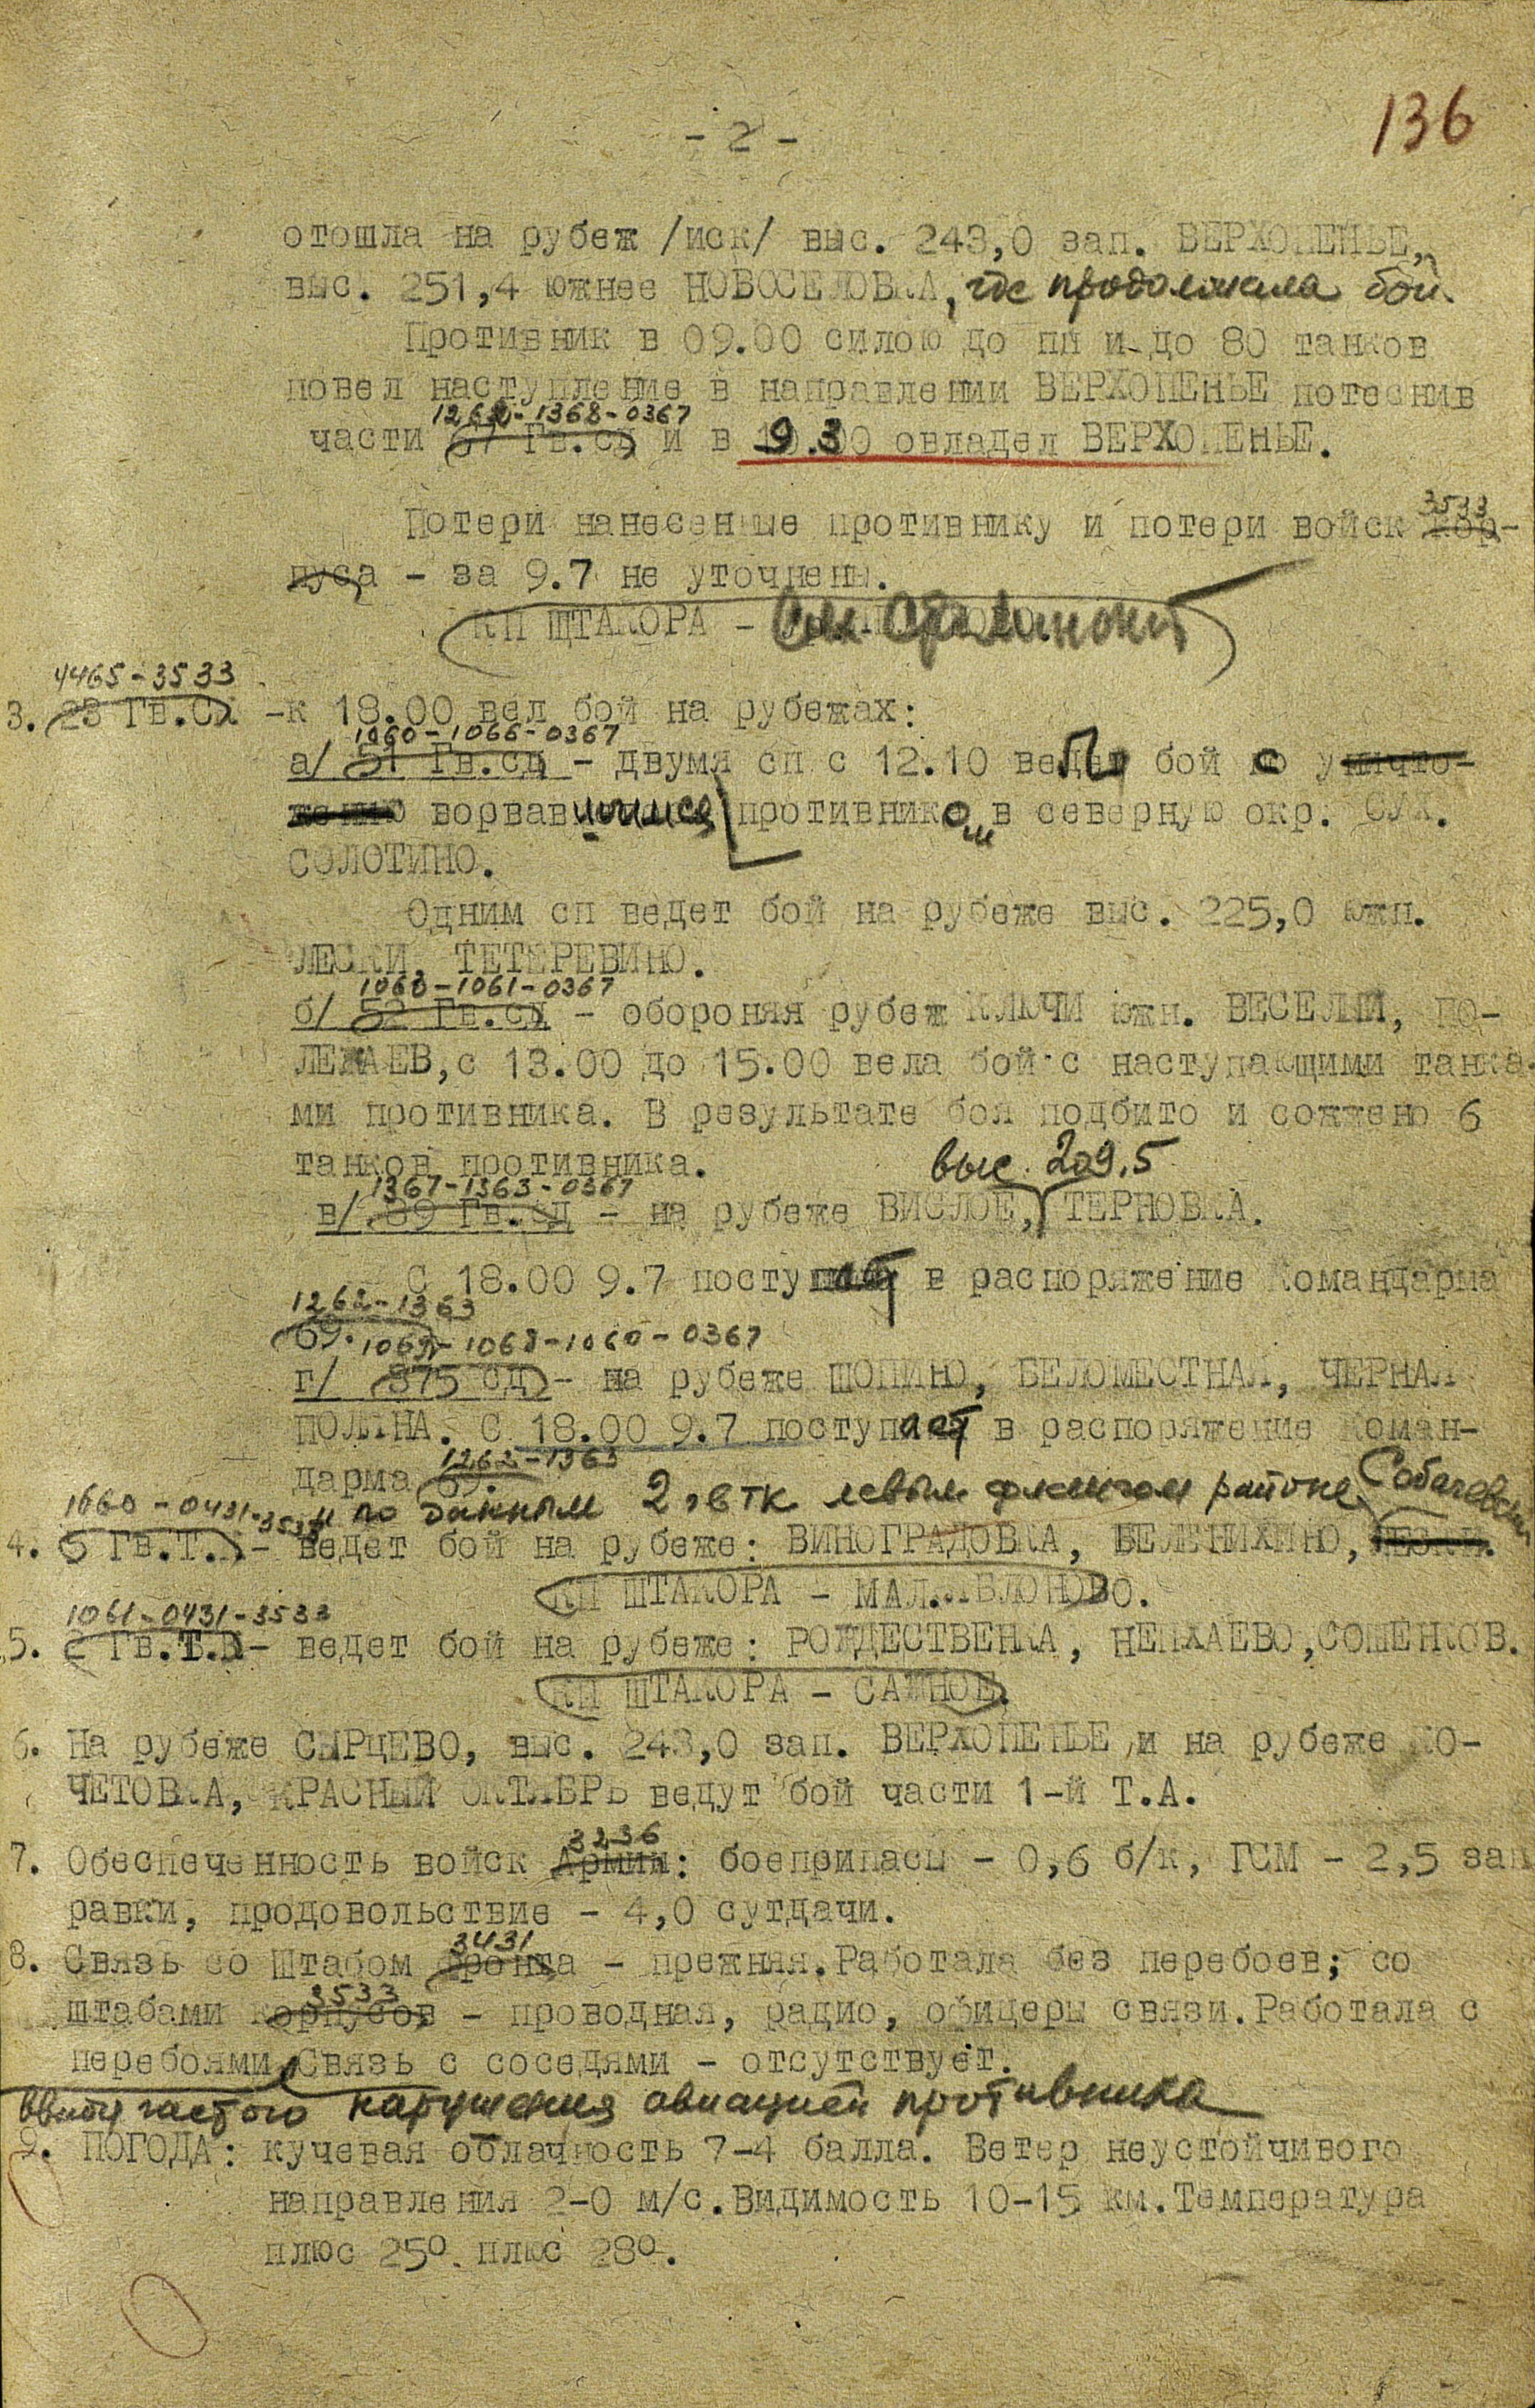 136
- 2 -
отошла на рубеж /иск/ выс. 243,0 зап. ВЕРХОПЕНЬЕ,
выс. 251,4 южнее НОВОСЕЛОВКА, где продолжала бой
Противник в 09.00 силою до пп и до 80 танков
повел наступление в направлении ВЕРХОПЕНЬЕ потеснив
1262-1368-0367
части 67 Гв.сд и в 9.30 овладел ВЕРХОПЕНЬЕ.
3533
Потери нанесенные противнику и потери войск кор-
пуса - за 9.7 не уточнены.
КП ШТАКОРА -
4465-3533
3. 23 Гв.Ск -к 18.00 вел бой на рубежах:
1060-1066-0367
а/ 51 Гв.сд - двумя сп с 12.10 вел бой с уничто-
жению ворвавшимся противником в северную окр. СУХ.
СОЛОТИНО.
Одним сп ведет бой на рубеже выс. 225,0 южн.
ЛЕСКИ, ТЕТЕРЕВИНО.
1060-1061-0367
б/ 52 Гв.сд - обороняя рубеж КЛЮЧИ южн. ВЕСЕЛЫЙ, ПО-
ЛЕЖАЕВ, с 13.00 до 15.00 вела бой с наступающими танка-
ми противника. В результате боя подбито и сожжено 6
танков противника.
выс. 209.5
1367-1363-0367
в/ 89 Гв.сд - на рубеже ВИСЛОЕ, ТЕРНОВКА.
С 18.00 9.7 поступает в распоряжение Командарма
1262-1363
69.
1069-1068-1060-0367
г/ 375 СД - на рубеже ШОПИНО, БЕЛОМЕСТНАЯ, ЧЕРНАЯ
ПОЛЯНА. С 18.00 9.7 поступает в распоряжение Коман-
1262-1363
дарма 69.
1660-0431-3533 и по данным 2 гв тк левым флангом районе
4. 5 Гв.Т.К - ведет бой на рубеже: ВИНОГРАДОВКА, БЕЛЕНИХИНО, ЛЕСКИ.
КП ШТАКОРА - МАЛ.ЯБЛОНОВО.
1061-0431-3533
5. 2 Гв.Т.К - ведет бой на рубеже: РОЖДЕСТВЕНКА, НЕПХАЕВО, СОШЕНКОВ.
КП ШТАКОРА - САЖНОЕ.
6. На рубеже СЫРЦЕВО, выс. 243,0 зап. ВЕРХОПЕНЬЕ и на рубеже КО-
ЧЕТОВКА, КРАСНЫЙ ОКТЯБРЬ ведут бой части 1-й Т.А.
3236
7. Обеспеченность войск Армии: боеприпасы - 0,6 б/к, ГСМ - 2,5 зап
равки, продовольствие - 4,0 сутдачи.
3431
8. Связь со Штабом фронта - прежняя. Работала без перебоев; со
3533
штабами корпусов - проводная, радио, офицеры связи. Работала с
перебоями Связь с соседями - отсутствует.
ввиду частого нарушения авиацией противника
9. ПОГОДА: кучевая облачность 7-4 балла. Ветер неустойчивого
направления 2-0 м/с. Видимость 10-15 км. Температура
плюс 25º плюс 28º.